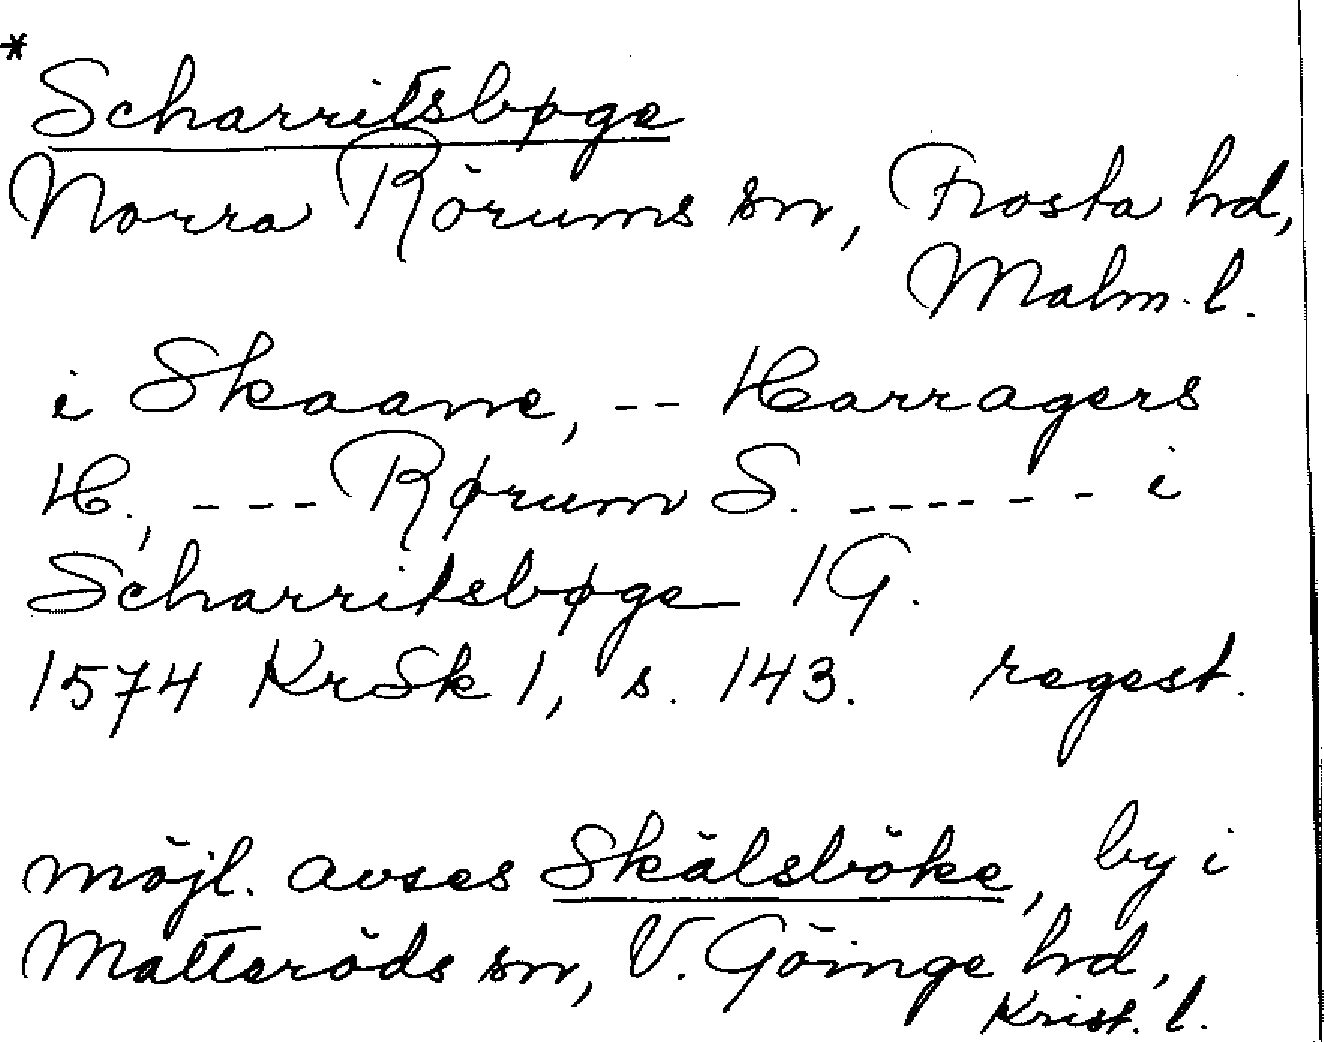 *
Scharritsbøge
Norra Rörums sn, Frosta hd,
Malm. l.
i Skaane, -- Harragers
H., --- Rørum S. ------ i
Scharritsbøge 1 G.
1574 KrSk 1, s. 143. regest.
möjl. avses Skälsböke, by i
Matteröds sn, V. Göinge hd,
Krist. l.